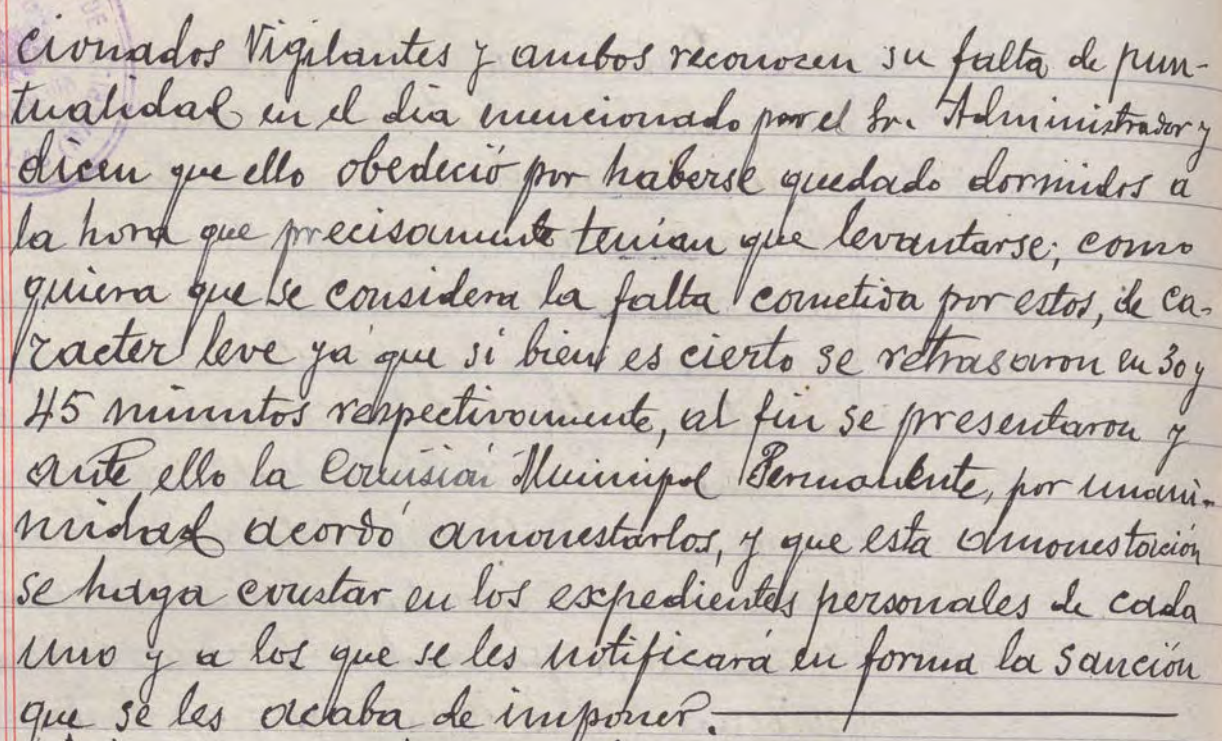 cionados Vigilantes y ambos reconocen su falta de pun-
tualidad en el dia mencionado por el Sr. Administrador y
dicen que ello obedeció por haberse quedado dormidos a
la hora que precisamente tenian que levantarse; como
quiera que se considera la falta cometida por estos, de ca-
racter leve ya que si bien es cierto se retrasaron en 30 y
45 minutos respectivamente, al fin se presentaron y
ante ello la Comisión Municipal Permanente, por unani-
midad acordó amonestarlos, y que esta amonestación
se haga constar en los expedientes personales de cada
uno y a los que se les notificará en forma la sanción
que se les acaba de imponer.